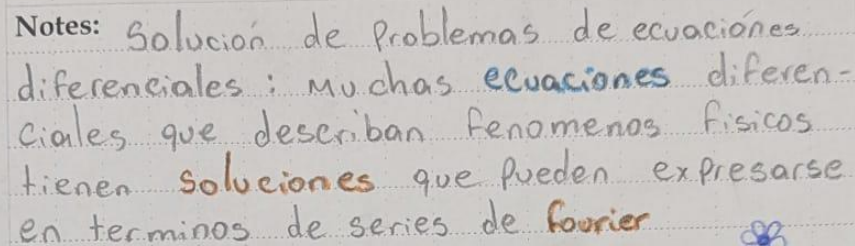 Notes: Solución de Problemas de ecuaciónes
diferenciales : Muchas ecuaciones diferen-
ciales que describan fenomenos fisicos
tienen soluciones que pueden expresarse
en terminos de series de fourier